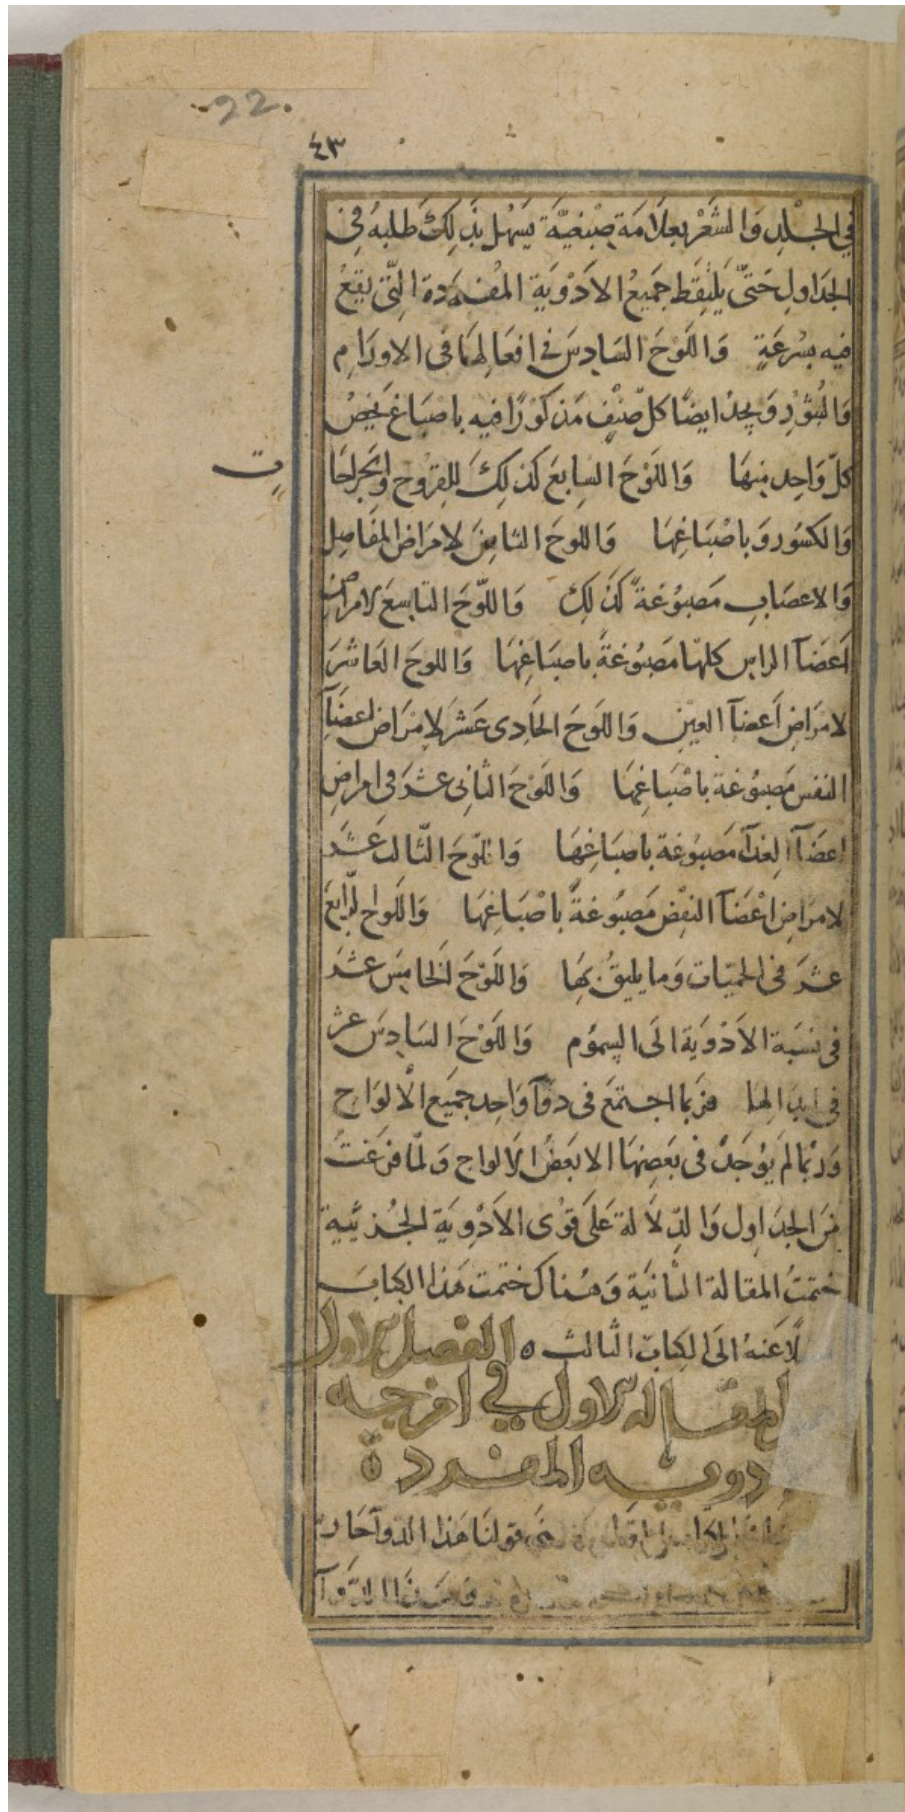 22
٤٣
في الجلد والشعر بعلامة صبغية يسهل بذلك طلبه في
الجداول حتى يلتقط جميع الادوية المفردة التى يقع
فيه بسرعة واللوح السادس في افعالها فى الاورام
والبثور ويجد ايضا كل صنف مذكورا فيه باصباغ يخص
كل واحد منها واللوح السابع كذلك للقروح والجراحا
ت
والكسور وباصباغها واللوح الثامن لامراض المفاصل
والاعصاب مصبوغة كذلك واللوح التاسع لامراض
اعضآ الراس كلها مصبوغة باصباغها واللوح العاشر
لامراض اعضآ العين واللوح الحادى عشر لامراض اعضآ
النفس مصبوغة باصباغها واللوح الثانى عشر فى امراض
اعضآ الغذآ مصبوغة باصباغها واللوح الثالث عشر
لامراض اعضآ النفض مصبوغة باصباغها واللواح الرابع
عشر فى الحميات وما يليق بها واللوح الخامس عشر
فى نسبة الادوية الى السموم واللوح السادس عشر
فى ابدالها فربما اجتمع فى دوآ واحد جميع الالواح
وربما لم يوجد فى بعضها الا بعض الالواح ولما فرغت
من الجداول والدلالة على قوى الادوية الجزئية
ختمت المقالة الثانية وهناك ختمت هذا الكتاب
لا عنه الى الكتاب الثالث ه الفصل الاول
المقاله الاول في امزجه
دويه المفردة
قولنا هذا الدوآ حار
وهذا الدوآ